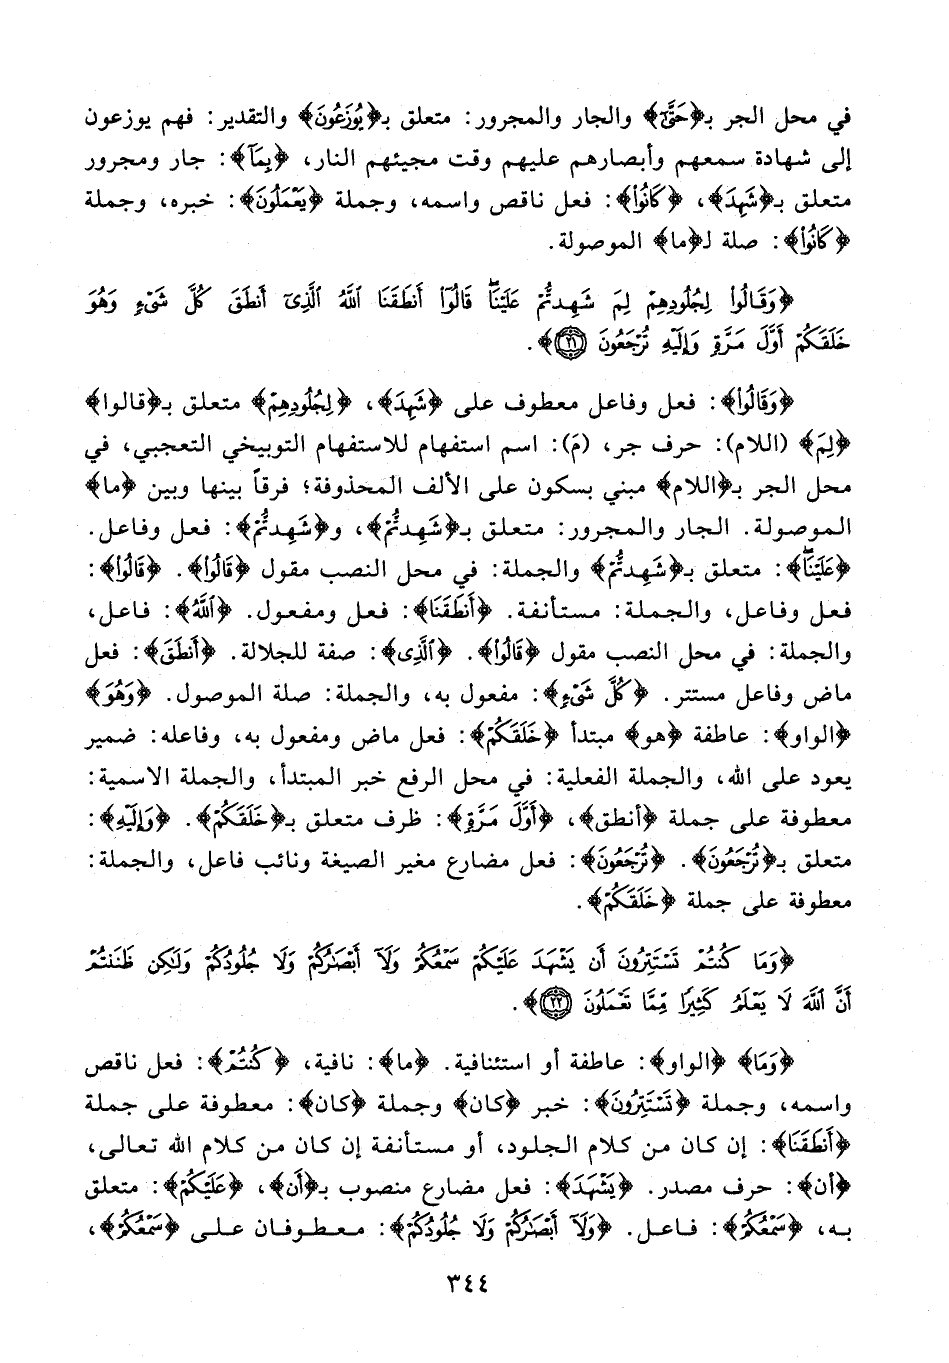 في محل الجر بـ﴿حَتَّىٰٓ﴾ والجار والمجرور: متعلق بـ﴿يُوزَعُونَ﴾ والتقدير: فهم يوزعون
إلى شهادة سمعهم وأبصارهم عليهم وقت مجيئهم النار، ﴿بِمَآ﴾: جار ومجرور
متعلق بـ﴿شَهِدَ﴾، ﴿كَانُوا۟﴾: فعل ناقص واسمه، وجملة ﴿يَعْمَلُونَ﴾: خبره، وجملة
﴿كَانُوا۟﴾: صلة لـ﴿ما﴾ الموصولة.
﴿وَقَالُوا۟ لِجُلُودِهِمْ لِمَ شَهِدتُّمْ عَلَيْنَا ۖ قَالُوٓا۟ أَنطَقَنَا ٱللَّهُ ٱلَّذِىٓ أَنطَقَ كُلَّ شَىْءٍ وَهُوَ
خَلَقَكُمْ أَوَّلَ مَرَّةٍ وَإِلَيْهِ تُرْجَعُونَ ﴿٢١﴾﴾.
﴿وَقَالُوا۟﴾: فعل وفاعل معطوف على ﴿شَهِدَ﴾، ﴿لِجُلُودِهِمْ﴾ متعلق بـ﴿قالوا﴾
﴿لِمَ﴾ (اللام): حرف جر، (مَ): اسم استفهام للاستفهام التوبيخي التعجبي، في
محل الجر بـ﴿اللام﴾ مبني بسكون على الألف المحذوفة؛ فرقاً بينها وبين ﴿ما﴾
الموصولة. الجار والمجرور: متعلق بـ﴿شَهِدتُّمْ﴾، و﴿شَهِدتُّمْ﴾: فعل وفاعل.
﴿عَلَيْنَا ۖ﴾: متعلق بـ﴿شَهِدتُّمْ﴾ والجملة: في محل النصب مقول ﴿قَالُوا۟﴾. ﴿قَالُوٓا۟﴾:
فعل وفاعل، والجملة: مستأنفة. ﴿أَنطَقَنَا﴾: فعل ومفعول. ﴿ٱللَّهُ﴾: فاعل،
والجملة: في محل النصب مقول ﴿قَالُوٓا۟﴾. ﴿ٱلَّذِىٓ﴾: صفة للجلالة. ﴿أَنطَقَ﴾: فعل
ماض وفاعل مستتر. ﴿كُلَّ شَىْءٍ﴾: مفعول به، والجملة: صلة الموصول. ﴿وَهُوَ﴾
﴿الواو﴾: عاطفة ﴿هو﴾ مبتدأ ﴿خَلَقَكُمْ﴾: فعل ماض ومفعول به، وفاعله: ضمير
يعود على الله، والجملة الفعلية: في محل الرفع خبر المبتدأ، والجملة الاسمية:
معطوفة على جملة ﴿أنطق﴾، ﴿أَوَّلَ مَرَّةٍ﴾: ظرف متعلق بـ﴿خَلَقَكُمْ﴾. ﴿وَإِلَيْهِ﴾:
متعلق بـ﴿تُرْجَعُونَ﴾. ﴿تُرْجَعُونَ﴾: فعل مضارع مغير الصيغة ونائب فاعل، والجملة:
معطوفة على جملة ﴿خَلَقَكُمْ﴾.
﴿وَمَا كُنتُمْ تَسْتَتِرُونَ أَن يَشْهَدَ عَلَيْكُمْ سَمْعُكُمْ وَلَآ أَبْصَٰرُكُمْ وَلَا جُلُودُكُمْ وَلَٰكِن ظَنَنتُمْ
أَنَّ ٱللَّهَ لَا يَعْلَمُ كَثِيرًا مِّمَّا تَعْمَلُونَ ﴿٢٢﴾﴾.
﴿وَمَا﴾ ﴿الواو﴾: عاطفة أو استئنافية. ﴿ما﴾: نافية، ﴿كُنتُمْ﴾: فعل ناقص
واسمه، وجملة ﴿تَسْتَتِرُونَ﴾: خبر ﴿كان﴾ وجملة ﴿كان﴾: معطوفة على جملة
﴿أَنطَقَنَا﴾: إن كان من كلام الجلود، أو مستأنفة إن كان من كلام الله تعالى،
﴿أن﴾: حرف مصدر. ﴿يَشْهَدَ﴾: فعل مضارع منصوب بـ﴿أن﴾، ﴿عَلَيْكُمْ﴾: متعلق
به، ﴿سَمْعُكُمْ﴾: فاعل. ﴿وَلَآ أَبْصَٰرُكُمْ وَلَا جُلُودُكُمْ﴾: معطوفان على ﴿سَمْعُكُمْ﴾،
٣٤٤